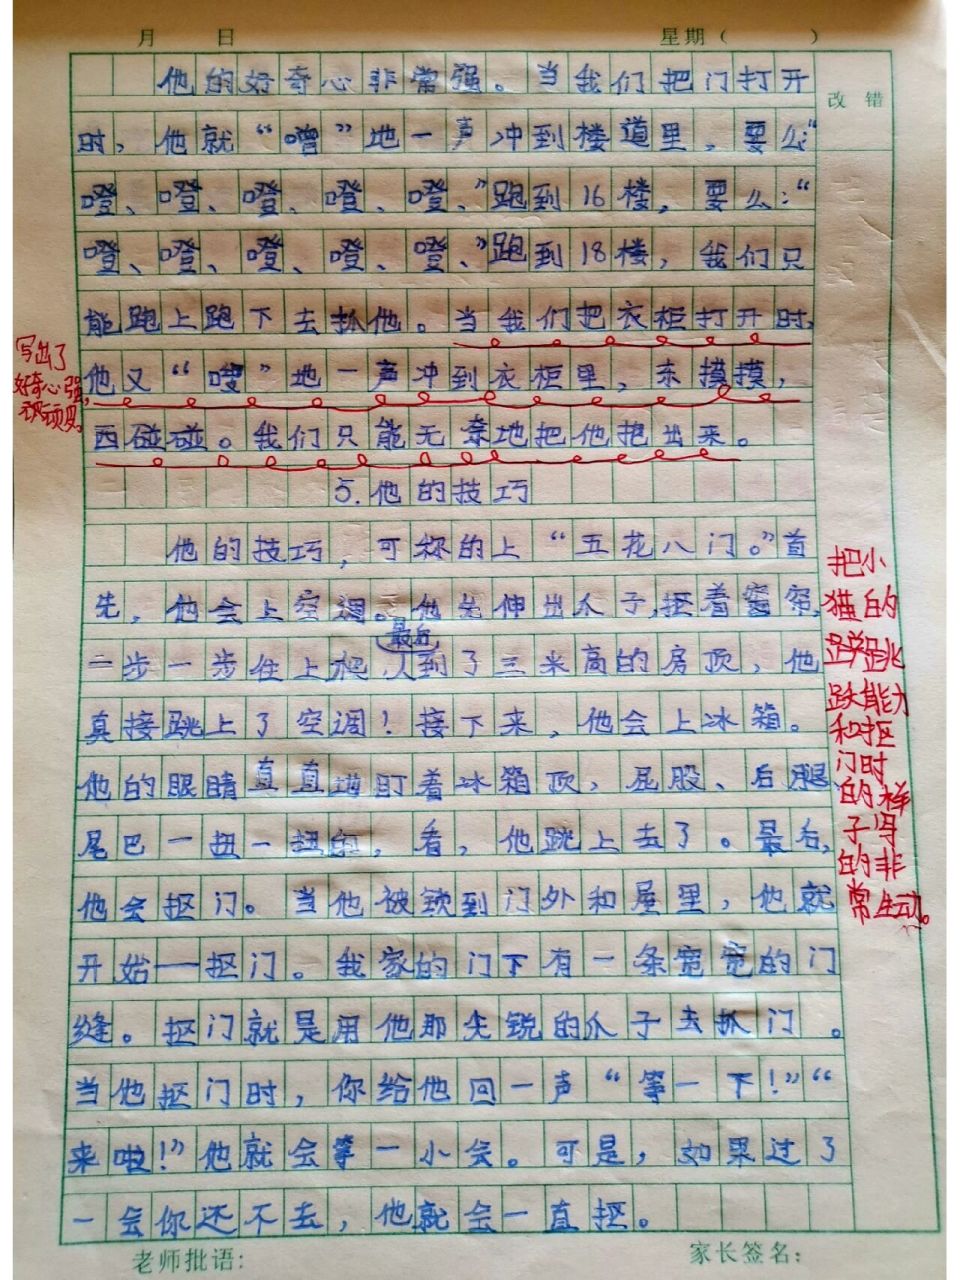 月 日 星期（ ）
改 错
他的好奇心非常强。当我们把门打开
时，他就“噌”地一声冲到楼道里，要么：“
噔、噔、噔、噔、噔、”跑到16楼，要么：“
噔、噔、噔、噔、噔、”跑到18楼，我们只
能跑上跑下去抓他。当我们把衣柜打开时，
他又“嗖”地一声冲到衣柜里，东摸摸，
西碰碰。我们只能无奈地把他抱出来。
写出了
好奇心强，
顽皮。
5.他的技巧
他的技巧，可称的上“五花八门。”首
先，他会上空调。他先伸出爪子，抠着窗帘，
一步一步往上爬，
最后
到了三米高的房顶，他
直接跳上了空调！接下来，他会上冰箱。
他的眼睛直直地盯着冰箱顶，屁股、后腿、
尾巴一扭一扭的，看，他跳上去了。最后，
他会抠门。当他被锁到门外和屋里，他就
开始——抠门。我家的门下有一条宽宽的门
缝。抠门就是用他那尖锐的爪子去抓门。
当他抠门时，你给他回一声“等一下！”“
来啦！”他就会等一小会。可是，如果过了
一会你还不去，他就会一直抠。
把小
猫的
蹿跳
跃能力
和抠
门时
的样
子写
的非
常生动。
老师批语：
家长签名：